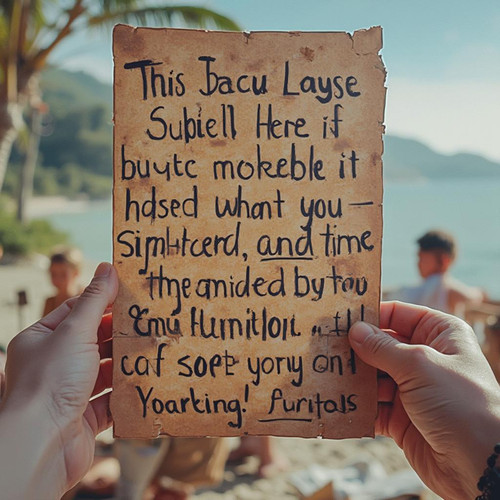 This Jacu Layse
Subiell Here if
buytc mokeble it
hdsed whont you —
Simhterd, and time
thye amided by tou
Emu Hunitloi.
caf sope yorry on
Yoarking! Puritals